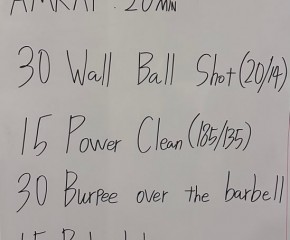 AMRAP : 20 MIN
30 Wall Ball Shot (20/14)
15 Power Clean (185/135)
30 Burpee over the barbell
15